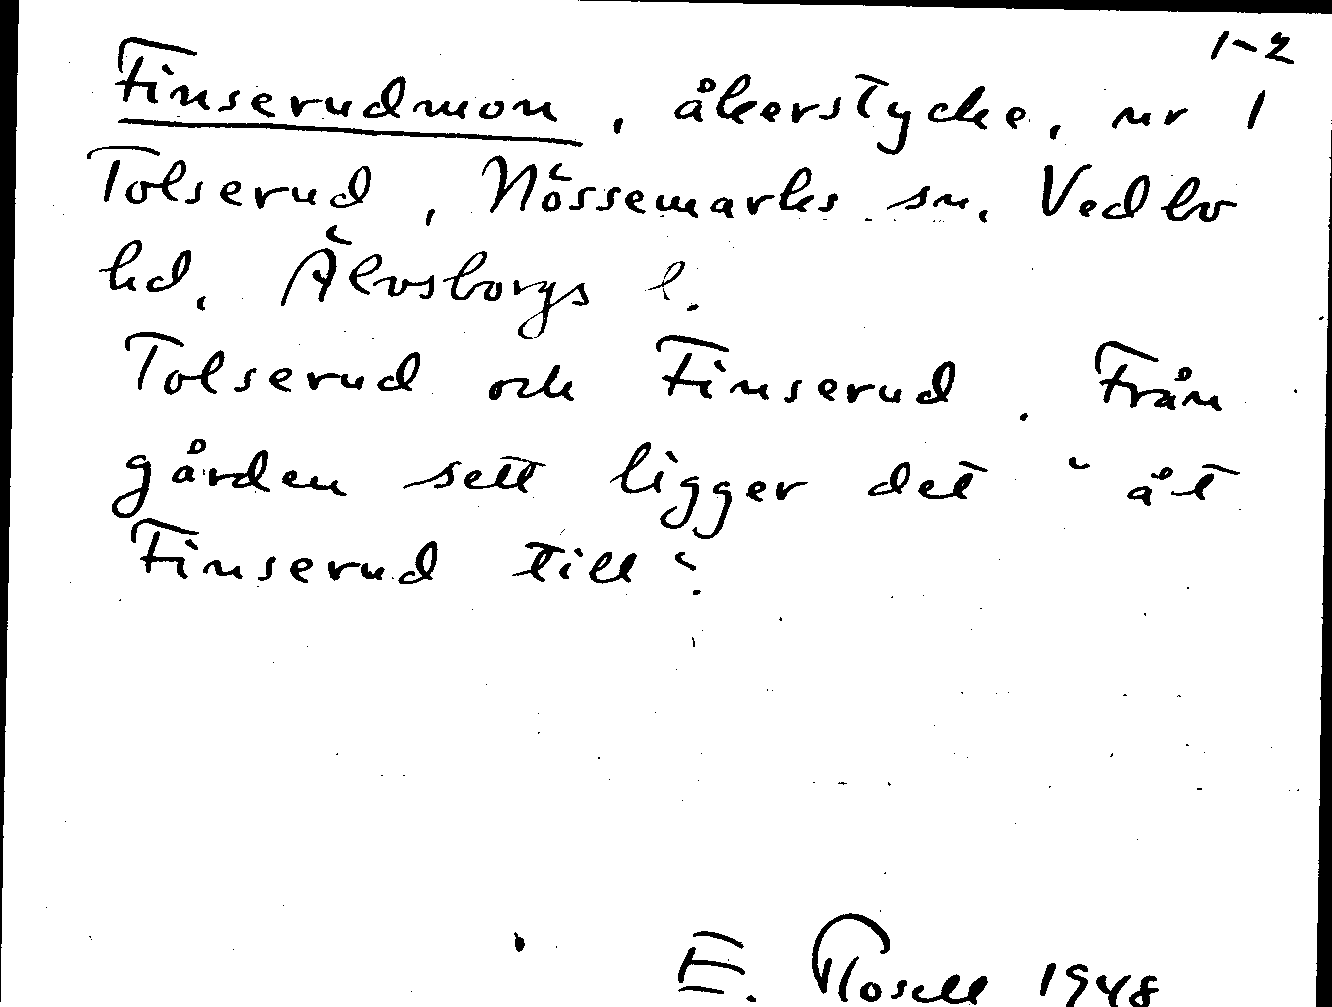 1-2
Finserudmon, åkerstycke, nr 1
Tolserud, Nössemarks sn. Vedbo
hd. Älvsborgs l.
Tolserud och Finserud. Från
gården sett ligger det "åt
Finserud till".
E. Rosell 1948